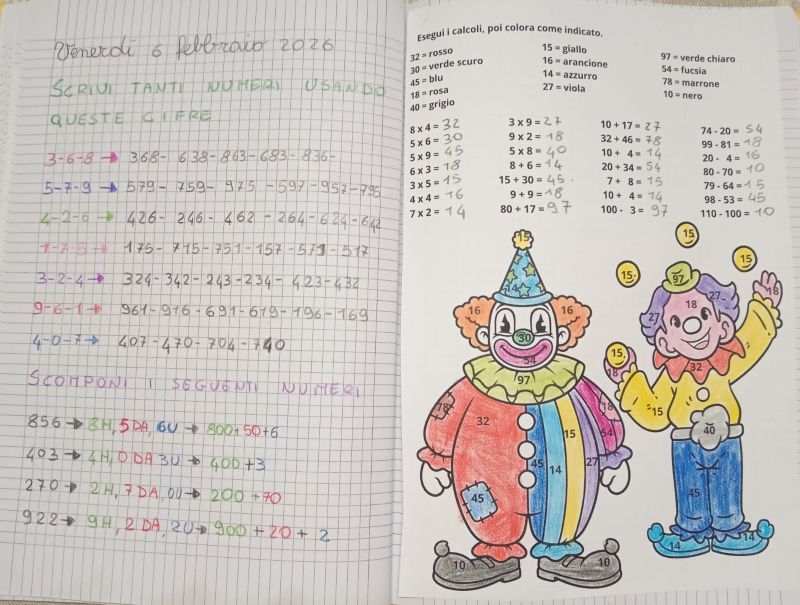 Venerdì 6 febbraio 2026
SCRIVI TANTI NUMERI USANDO
QUESTE CIFRE
3-6-8 → 368- 638-863-683-836-
5-7-9 → 579- 759- 975 -597-957-795
4-2-6 → 426- 246- 462 - 264-624-642
1-7-5 → 175-715-751-157-571-517
3-2-4 → 324-342-243-234- 423-432
9-6-1 → 961-916-691-619-196-169
4-0-7 → 407-470-704-740
SCOMPONI I SEGUENTI NUMERI
856 → 8H, 5DA, 6U → 800+50+6
403 → 4H, 0DA 3U → 400+3
270 → 2H, 7DA, 0U → 200+70
922 → 9H, 2DA, 2U → 900+20+2
Esegui i calcoli, poi colora come indicato.
32 = rosso
30 = verde scuro
45 = blu
18 = rosa
40 = grigio
15 = giallo
16 = arancione
14 = azzurro
27 = viola
97 = verde chiaro
54 = fucsia
78 = marrone
10 = nero
8 x 4 = 32
5 x 6 = 30
5 x 9 = 45
6 x 3 = 18
3 x 5 = 15
4 x 4 = 16
7 x 2 = 14
3 x 9 = 27
9 x 2 = 18
5 x 8 = 40
8 + 6 = 14
15 + 30 = 45
9 + 9 = 18
80 + 17 = 97
10 + 17 = 27
32 + 46 = 78
10 + 4 = 14
20 + 34 = 54
7 + 8 = 15
10 + 4 = 14
100 - 3 = 97
74 - 20 = 54
99 - 81 = 18
20 - 4 = 16
80 - 70 = 10
79 - 64 = 15
98 - 53 = 45
110 - 100 = 10
15
14
16
16
30
54
97
78
32
18
54
15
45
14
27
45
10
10
15
15
15.
97
27
18
18
27
15.
18
32
15
40
45
14
14